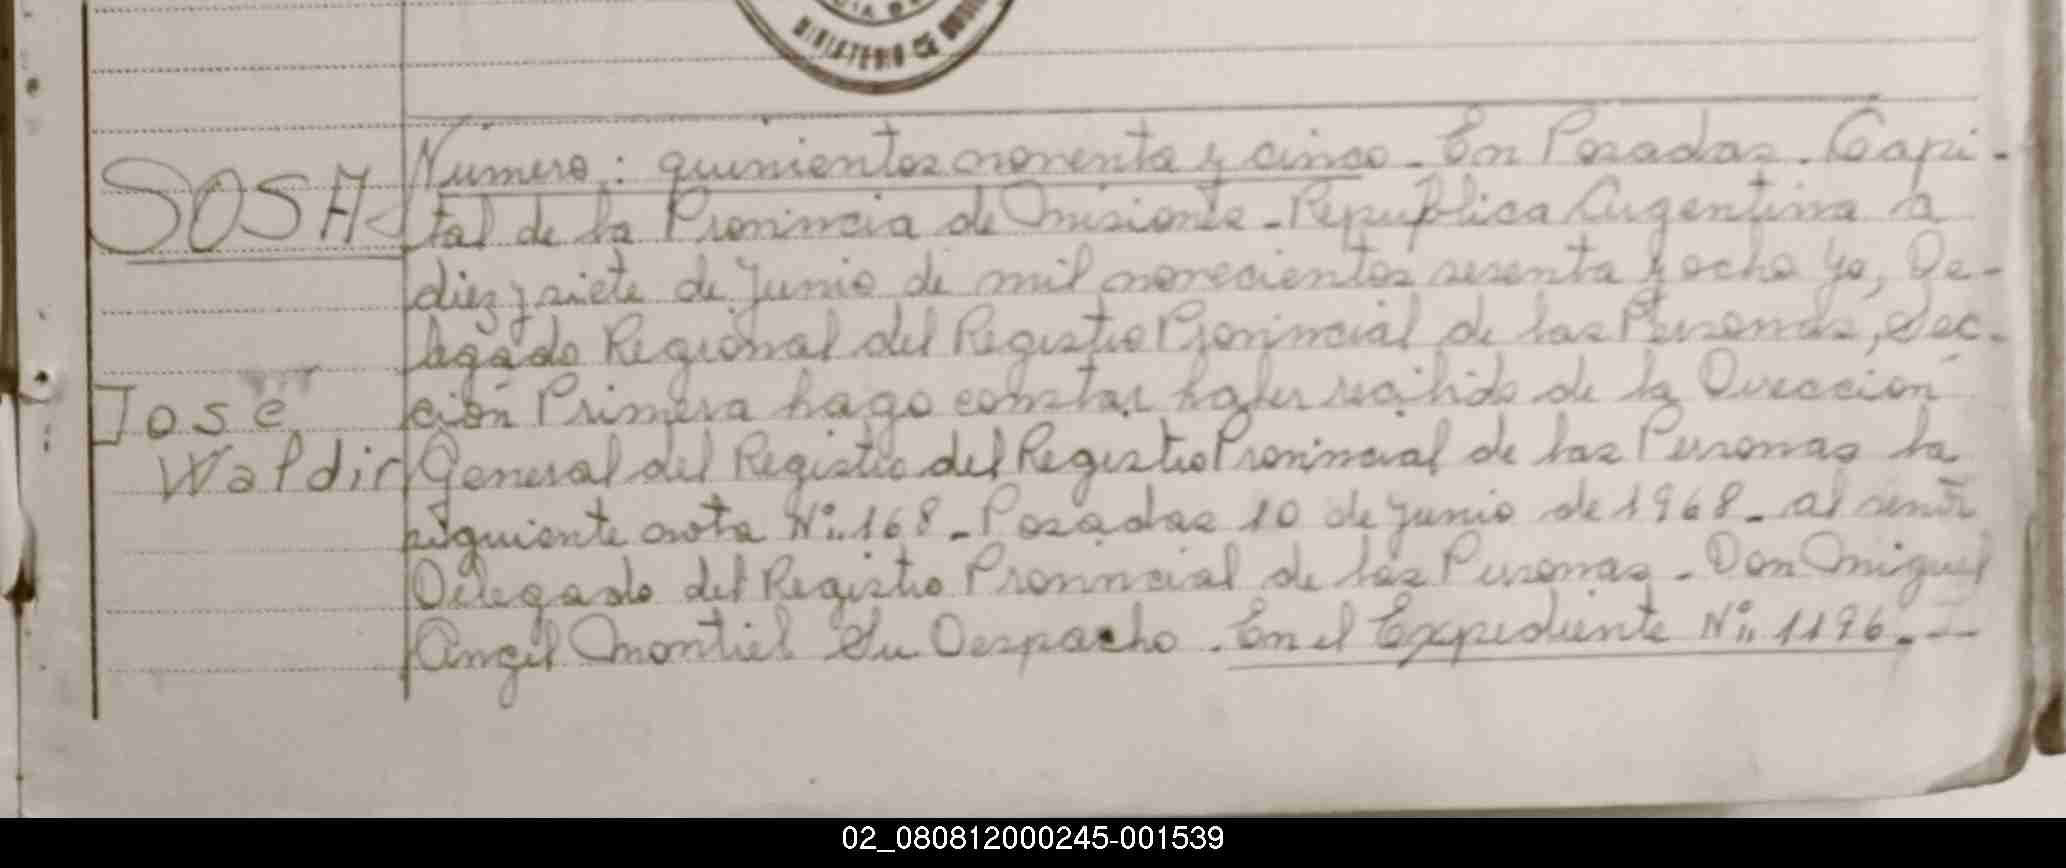 MINISTERIO DE
Número: quinientos noventa y cinco - En Posadas. Capi-
SOSA tal de la Provincia de Misiones - Republica Argentina a
diez y siete de Junio de mil novecientos sesenta y ocho yo, De-
legado Regional del Registro Provincial de las Personas, Sec-
José ción Primera hago constar haber recibido de la Dirección
Waldir General del Registro del Registro Provincial de las Personas la
siguiente nota Nº 168 - Posadas 10 de Junio de 1968 - al señor
Delegado del Registro Provincial de las Personas - Don Miguel
Angel Montiel Su Despacho. En el Expediente Nº 1196. -
02_080812000245-001539